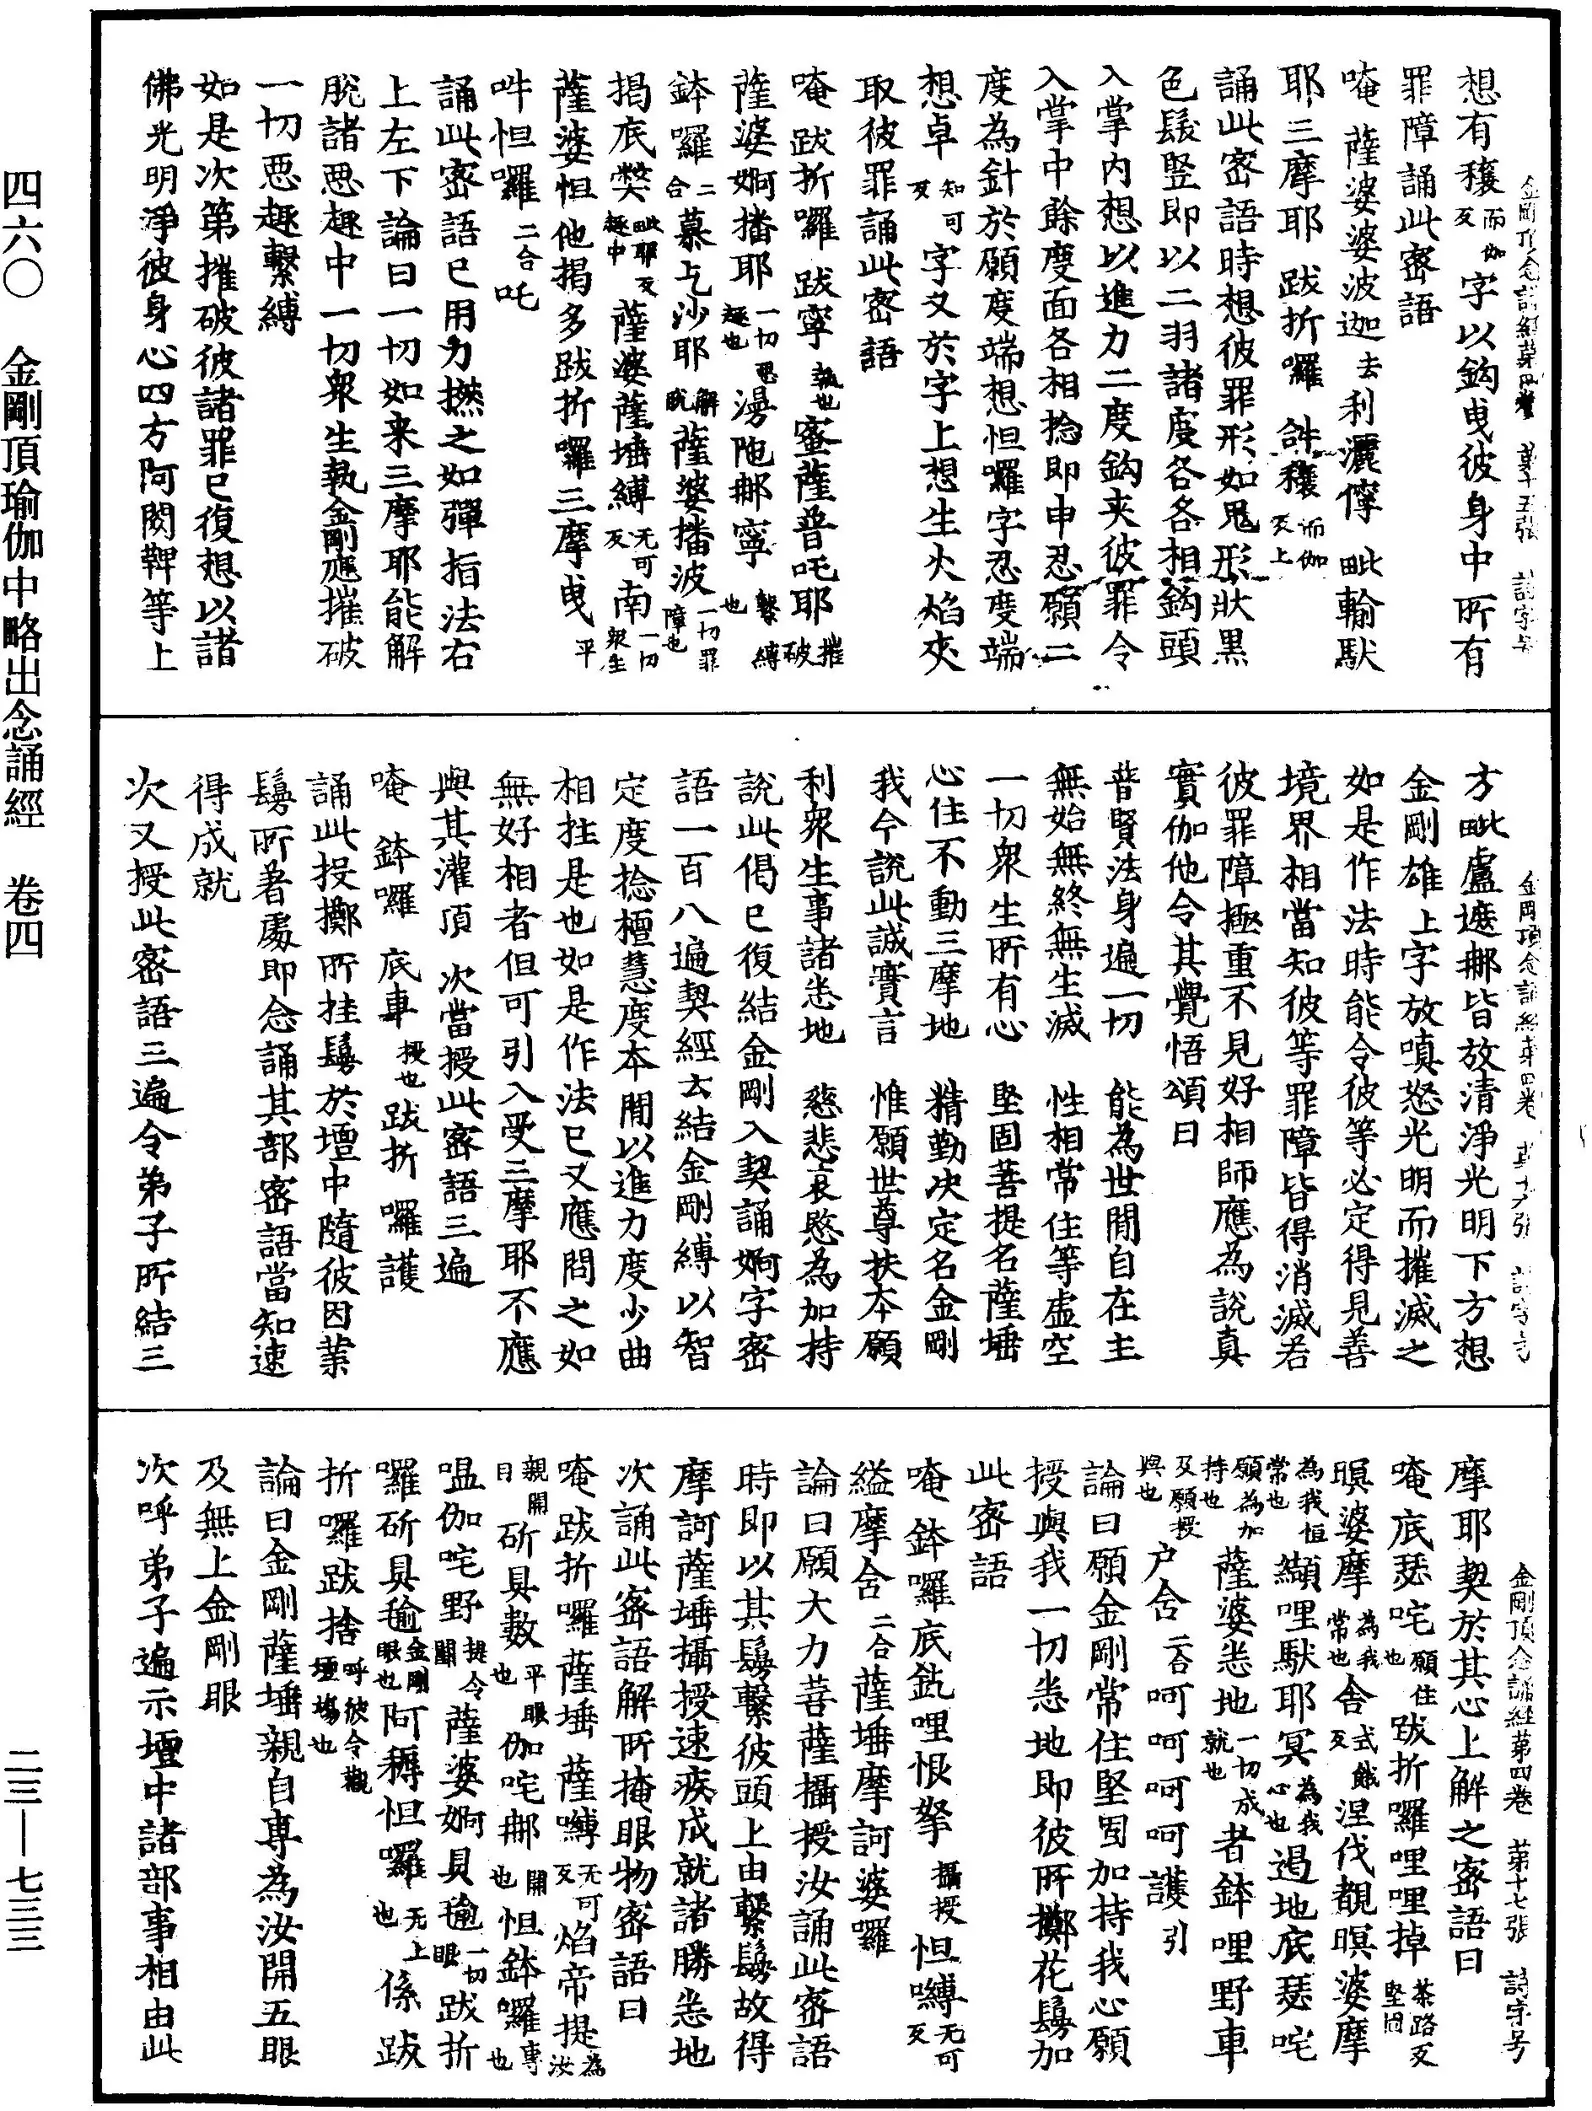 想有穰而伽反字以鈎曳彼身中所有
罪障誦此密語
唵 薩婆婆波迦去利灑儜 毗輸馱
耶三摩耶 跋折囉 𤙖穰而伽反上
誦此密語時想彼罪形如鬼形狀黑
色髮竪即以二羽諸度各各相鈎頭
入掌内想以進力二度鈎夾彼罪令
入掌中餘度面各相捻即申忍願二
度為針於願度端想怛囉字忍度端
想卓知可反字又於字上想生火焰夾
取彼罪誦此密語
唵 跋折囉 跋寧執也蜜薩普吒耶摧破
薩婆婀播耶一切惡趣也漫陁那寧繫縛也
鉢囉二合慕乞沙耶解脫薩婆播波一切罪障也
揭底弊毗耶反趣中薩婆薩埵縛无可反南一切衆生
薩婆怛他揭多跋折囉三摩曳平
吽怛囉二合吒
誦此密語已用力撚之如彈指法右
上左下論曰一切如来三摩耶能解
脫諸惡趣中一切衆生執金剛應摧破
一切惡趣繫縛
如是次第摧破彼諸罪已復想以諸
佛光明淨彼身心四方阿閦鞞等上
方毗盧遮那皆放清淨光明下方想
金剛雄上字放嗔怒光明而摧滅之
如是作法時能令彼等必定得見善
境界相當知彼等罪障皆得消滅若
彼罪障極重不見好相師應為說真
實伽他令其覺悟頌曰
普賢法身遍一切 能為世間自在主
無始無終無生滅 性相常住等虛空
一切衆生所有心 堅固菩提名薩埵
心住不動三摩地 精勤決定名金剛
我今說此誠實言 惟願世尊扶本願
利衆生事諸悉地 慈悲哀愍為加持
說此偈已復結金剛入契誦婀字密
語一百八遍契經云結金剛縛以智
定度捻檀慧度本間以進力度少曲
相拄是也如是作法已又應問之如
無好相者但可引入受三摩耶不應
與其灌頂 次當授此密語三遍
唵 鉢囉 底車授也跋折 囉護
誦此投擲所挂鬘於壇中隨彼因業
鬘所著處即念誦其部密語當知速
得成就
次又授此密語三遍令弟子所結三
摩耶契於其心上解之密語曰
唵底瑟咤願住也跋折囉哩哩掉茶路反堅固
暝婆摩為我常也舍式餓反涅伐覩暝婆摩
為我恒常也願為加持也纈哩馱耶冥為我心也遏地底瑟咤
及願授與也薩婆悉地一切成就也者鉢哩野車
户舍二合呵呵呵呵護引
論曰願金剛常住堅固加持我心願
授與我一切悉地即彼所擲花鬘加
此密語
唵 鉢囉底釓哩恨拏攝授怛嚩无可反
縊摩舍二合薩埵摩訶婆囉
論曰願大力菩薩攝授汝誦此密語
時即以其鬘繫彼頭上由繫鬘故得
摩訶薩埵攝授速疾成就諸勝悉地
次誦此密語解所掩眼物密語曰
唵跋折囉薩埵 薩嚩无可反焰帝提為汝
親開目斫具數平眼也伽咤那開也怛鉢囉專也
嗢伽咤野提令開薩婆婀具瑜一切眼跋折
囉斫具瑜金剛眼也阿耨怛囉无上也係 跋
折囉跋捨呼彼令觀壇場也
論曰金剛薩埵親自專為汝開五眼
及無上金剛眼
次呼弟子遍示壇中諸部事相由此
金剛頂念誦經第四卷 第十五張 詩字号
金剛頂念誦經第四卷 第十六張 詩字号
金剛頂念誦經第四卷 第十七張 詩字号
四六〇 金剛頂瑜伽中略出念誦經 卷四 二三—七三三